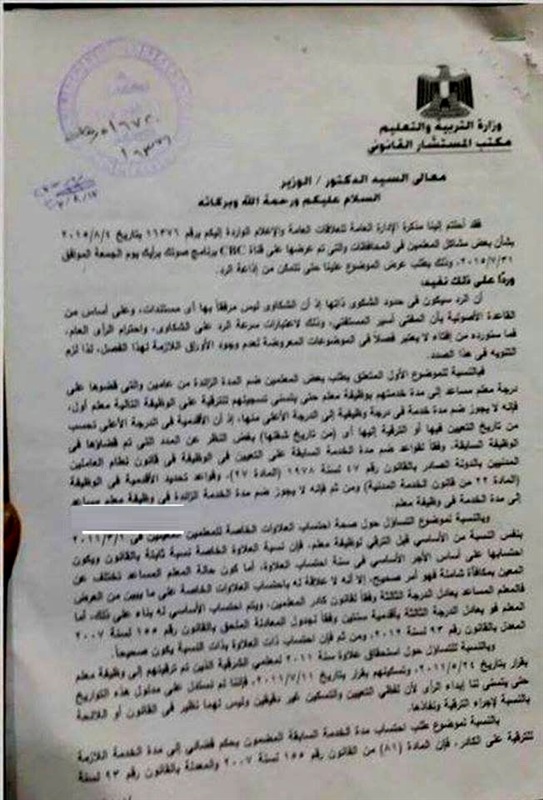 وزارة التربية والتعليم
مكتب المستشار القانونى
١٦٣٧٦
معالى السيد الدكتور / الوزير
السلام عليكم ورحمة الله وبركاته
فقد أحلتم إلينا مذكرة الإدارة العامة للعلاقات العامة والإعلام الواردة إليكم برقم ١٦٣٧٦ بتاريخ ٢٠١٥/٨/٤
بشأن بعض مشاكل المعلمين فى المحافظات والتى تم عرضها على قناة CBC برنامج صوتك برأيك يوم الجمعة الموافق
٢٠١٥/٧/٣١، وذلك بطلب عرض الموضوع علينا حتى نتمكن من إذاعة الرد.
وردًا على ذلك نفيد:
أن الرد سيكون فى حدود الشكوى ذاتها إذ أن الشكاوى ليس مرفقاً بها أى مستندات، وعلى أساس من
القاعدة الأصولية بأن المفتى أسير المستفتى، وذلك لاعتبارات سرعة الرد على الشكاوى، واحترام الرأى العام،
فما سنورده من إفتاء لا يعتبر فصلاً فى الموضوعات المعروضة لعدم وجود الأوراق اللازمة لهذا الفصل، لذا لزم
التنويه فى هذا الصدد.
فبالنسبة للموضوع الأول المتعلق بطلب بعض المعلمين ضم المدة الزائدة عن عامين والتى قضوها على
درجة معلم مساعد إلى مدة خدمتهم بوظيفة معلم حتى يتسنى تسجيلهم للترقية على الوظيفة التالية معلم أول،
فإنه لا يجوز ضم مدة خدمة فى درجة وظيفية إلى الدرجة الأعلى منها، إذ أن الأقدمية فى الدرجة الأعلى تحسب
من تاريخ التعيين فيها أو الترقية إليها أى (من تاريخ شغلها) بغض النظر عن المدد التى تم قضاؤها فى
الوظيفة السابقة. وفقاً لقواعد ضم مدة الخدمة السابقة على التعيين فى الوظيفة فى قانون نظام العاملين
المدنيين بالدولة الصادر بالقانون رقم ٤٧ لسنة ١٩٧٨ (المادة ٢٧)، وقواعد تحديد الأقدمية فى الوظيفة
(المادة ٢٢ من قانون الخدمة المدنية) ومن ثم فإنه لا يجوز ضم مدة الخدمة الزائدة فى وظيفة معلم مساعد
إلى مدة خدمة فى وظيفة معلم.
وبالنسبة لموضوع التساؤل حول صحة احتساب العلاوات الخاصة للمعلمين المعينين فى ٢٠١١/٣/١
بنفس النسبة من الأساسي قبل الترقي لوظيفة معلم، فإن نسبة العلاوة الخاصة نسبة ثابتة بالقانون ويكون
احتسابها على أساس الأجر الأساسي فى سنة العلاوة، أما كون حالة المعلم المساعد تختلف عن
المعين بمكافأة شاملة فهو أمر صحيح، إلا أنه لا علاقة له باحتساب العلاوات الخاصة على ما يبين من العرض
فالمعلم المساعد يعادل الدرجة الثالثة وفقاً لقانون كادر المعلمين، ويتم احتساب الأساسي له بناء على ذلك، أما
المعلم فهو يعادل الدرجة الثالثة بأقدمية سنتين وفقاً لجدول المعادلة الملحق بالقانون رقم ١٥٥ لسنة ٢٠٠٧
المعدل بالقانون رقم ٩٣ لسنة ٢٠١٢، ومن ثم فإن احتساب ذات العلاوة بذات النسبة يكون صحيحاً.
وبالنسبة للتساؤل حول استحقاق علاوة سنة ٢٠١١ لمعلمى الشرقية الذين تم ترقيتهم إلى وظيفة معلم
بقرار بتاريخ ٢٠١١/٥/٢٤، وتسكينهم بقرار بتاريخ ٢٠١١/٧/١١، فإننا لم نستدل على مدلول هذه التواريخ
حتى يتسنى لنا إبداء الرأى لأن لفظى التعيين والتسكين غير دقيقين وليس لهما نظير فى القانون أو اللائحة
بالنسبة لإجراء الترقية ونفاذها.
بالنسبة لموضوع طلب احتساب مدة الخدمة السابقة المضمون بحكم قضائى إلى مدة الخدمة اللازمة
للترقية على الكادر، فإن المادة (٨١) من القانون رقم ١٥٥ لسنة ٢٠٠٧ والمعدلة بالقانون رقم ٩٣ لسنة